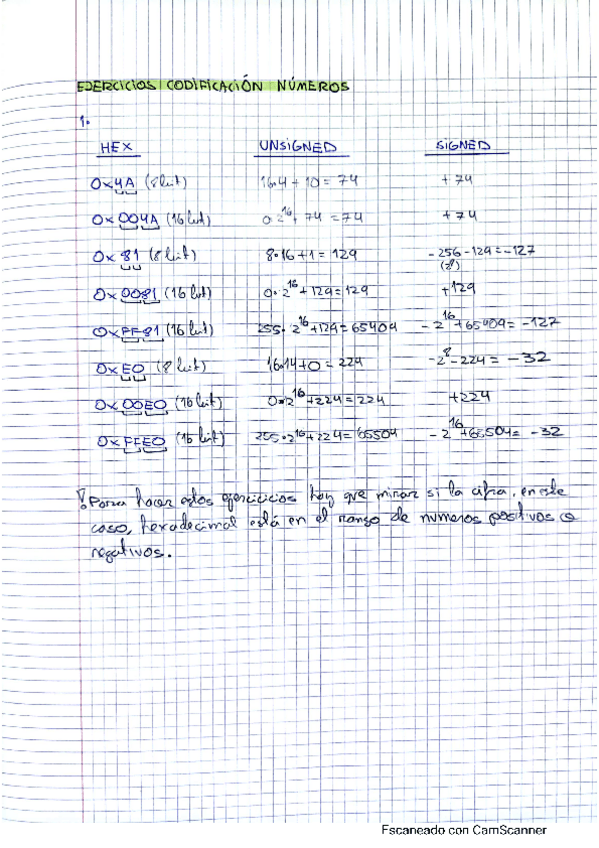 EJERCICIOS CODIFICACIÓN NÚMEROS
1.
HEX UNSIGNED SIGNED
0x4A (8bit) 16·4+10=74 +74
0x004A (16bit) 0·2^16+74=74 +74
0x81 (8bit) 8·16+1=129 -256-129=-127
(2^8)
0x0081 (16bit) 0·2^16+129=129 +129
0xFF81 (16bit) 255·2^16+129=65409 -2^16+65409=-127
0xE0 (8bit) 16·14+0=224 -2^8-224=-32
0x00E0 (16bit) 0·2^16+224=224 +224
0xFFE0 (16bit) 255·2^16+224=65504 -2^16+65504=-32
¡Para hacer estos ejercicios hay que mirar si la cifra, en este
caso, hexadecimal está en el rango de números positivos o
negativos.
Escaneado con CamScanner